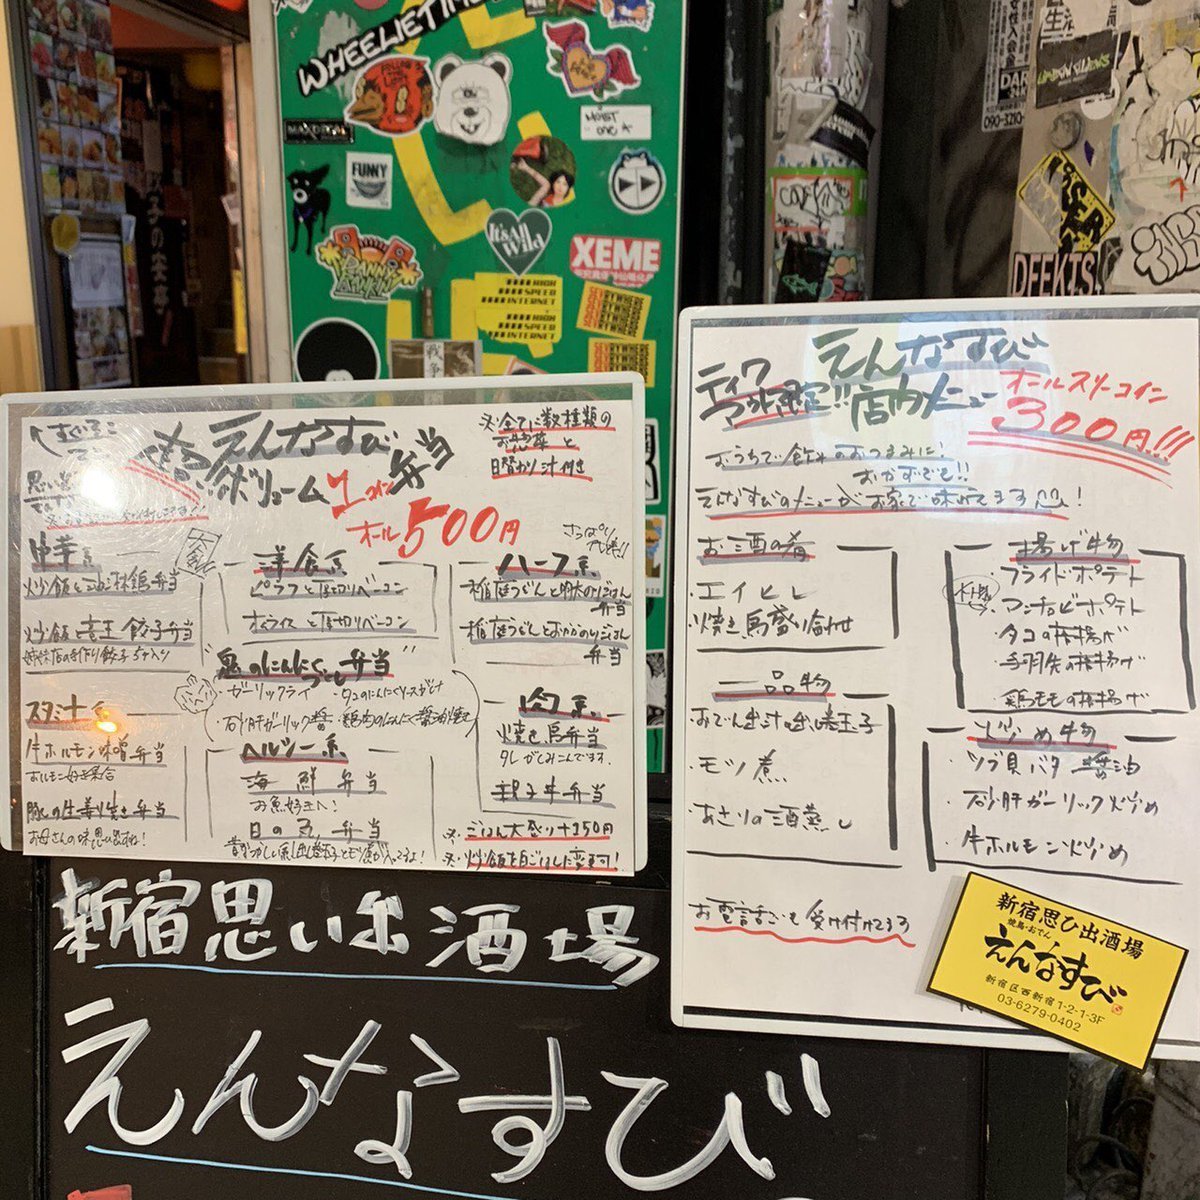 WHEELIETIME
FUNNY
It's All Wild
XEME
HIGH
SPEED
INTERNET
HIGH
SPEED
INTERNET
戦争
DEEKTS
えんなすび
ボリューム1コイン弁当
オール500円
※全てに数種類の
お惣菜と
日替わり汁付き
中華系
炒飯と油淋鶏弁当
炒飯と竜王餃子弁当
姉妹店の手作り餃子5ヶ入り
洋食系
ピラフと厚切りベーコン
オムライスと厚切りベーコン
さっぱり
ハーフ系
稲庭うどんと明太のりごはん
弁当
稲庭うどんとおかかのりごはん
弁当
鬼のにんにくづくし弁当
・ガーリックライス
・砂肝ガーリック醤
・鶏肉のにんにく醤油焼き
スタミナ系
牛ホルモン味噌弁当
ホルモン好き集合
豚の生姜焼き弁当
お母さんの味思い出すね!
ヘルシー系
海鮮弁当
お魚好きへ!
日の丸弁当
昔なつかしい
肉系
焼き鳥弁当
タレがしみこんでます。
親子丼弁当
※ごはん大盛り+150円
※炒飯を白ごはんに変更可!
えんなすび
テイクアウト限定!!店内メニュー
オールスリーコイン
300円!!!
おうちで飲みのおつまみに!
おかずでも!!
えんなすびのメニューがお家で味わえます!
お酒の肴
・エイヒレ
・焼き鳥盛り合わせ
一品物
・おでん出汁の出し巻玉子
・モツ煮
・あさりの酒蒸し
揚げ物
・フライドポテト
・アンチョビーポテト
・タコの唐揚げ
・手羽先の唐揚げ
・鶏モモの唐揚げ
炒め物
・ツブ貝バター醤油
・砂肝ガーリック炒め
・牛ホルモン炒め
お電話でも受け付けてます
新宿思ひ出酒場
焼鳥・おでん
えんなすび
新宿区西新宿1-2-1-3F
03-6279-0402
新宿思い出酒場
えんなすび